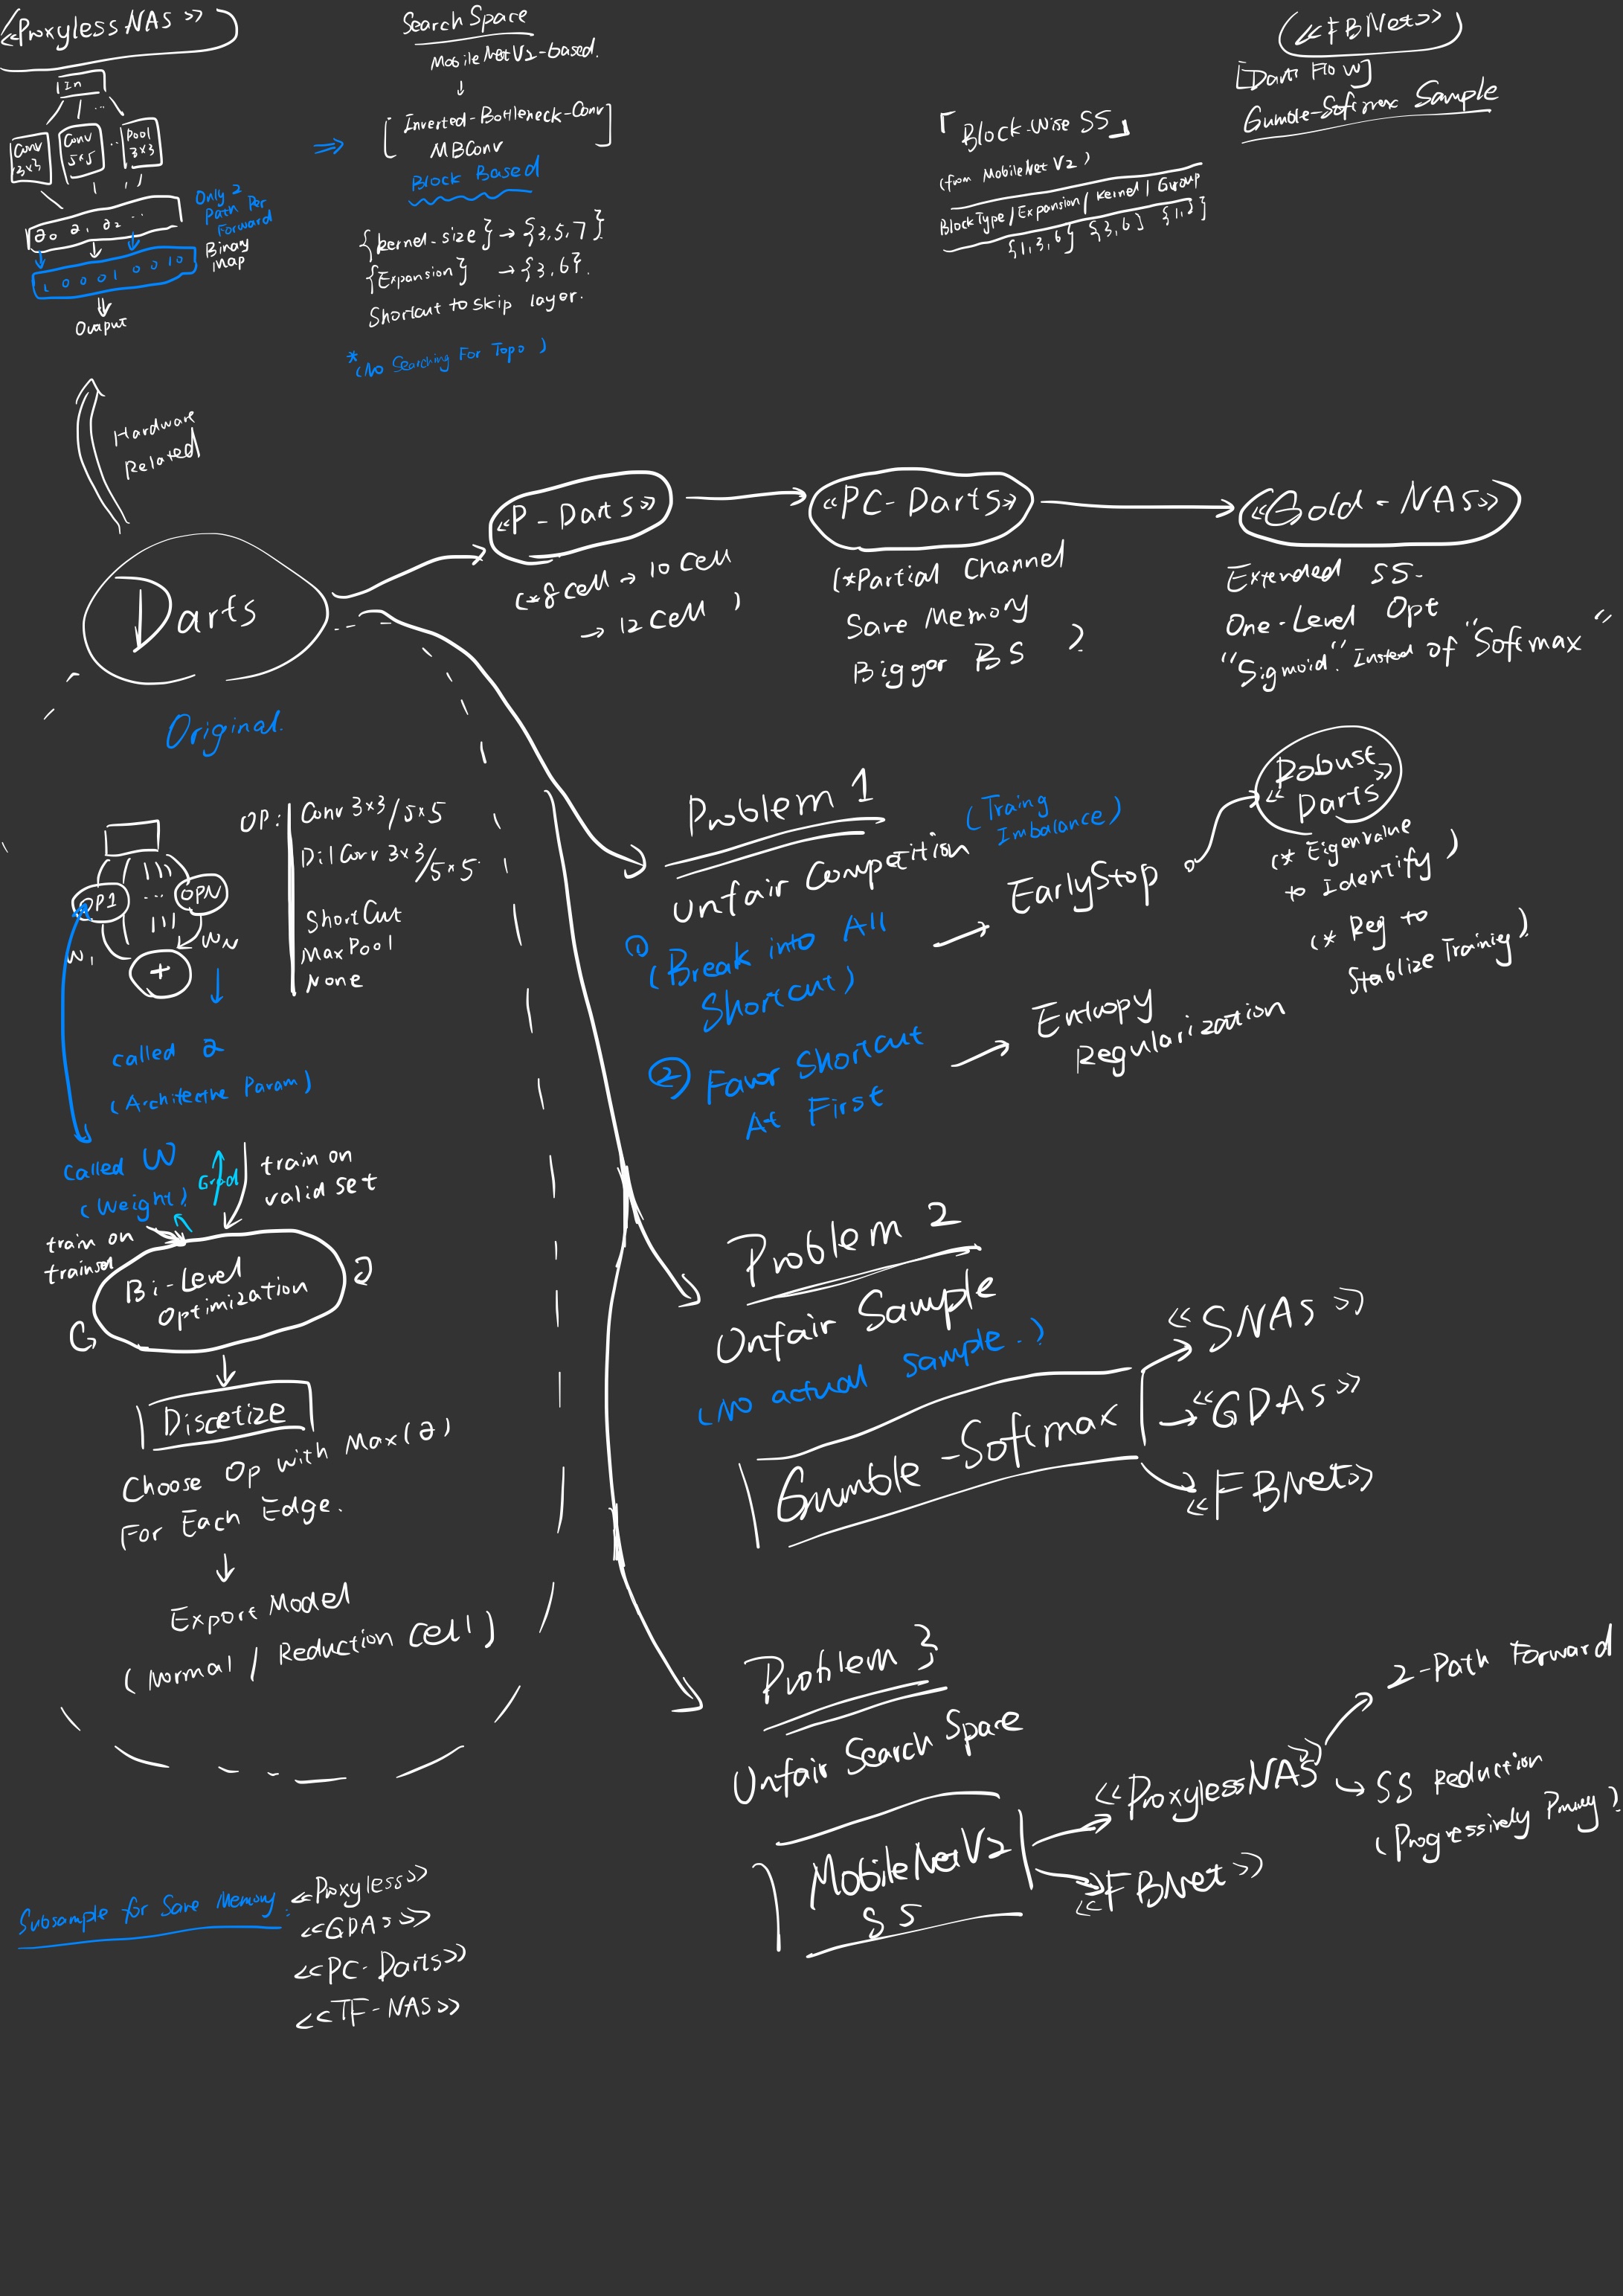 «ProxylessNAS»
In
Conv 3×3
Conv 5×5
...
Pool 3×3
a0 a1 a2 ...
1 0 0 0 1 0 0 1 0
Ouaput
Only 2
Path Per
Forward
Binary
Map
Search Space
MobileNetV2-based.
Inverted-Bottleneck-Conv
MBConv
Block Based
{kernel-size} → {3,5,7}
{Expansion} → {3,6}.
Shortcut to skip layer.
* (No Searching For Topo)
«FBNet»
[Dart Flow]
Gumble-Softmax Sample
「Block-Wise SS」
(from MobileNet V2)
BlockType/Expansion/kernel/Group
{1,3,6} {3,6} {1,2}
Hardware
Related
Darts
Original.
«P-Darts»
(*8 cell → 10 cell
→ 12 cell)
«PC-Darts»
(*Partial Channel
Save Memory
Biggor BS)
«Gold-NAS»
Extended SS.
One-Level Opt
"Sigmoid" Insted of "Softmax"
OP1 ... OPN
W1 WN
+
OP:
Conv 3×3/5×5
Dil Conv 3×3/5×5
ShortCut
MaxPool
None
called a
(Architecthe Param)
called W
(Weight)
Grad
train on
valid set
train on
trainset
Bi-Level
Optimization
Discetize
Choose Op with Max(a)
For Each Edge.
Export Model
(Normal / Reduction Cell)
Problem 1
Unfair Competition
(Traing
Imbalance)
① (Break into All
Shortcut)
→ EarlyStop
«Robust
Darts»
(* Eigenvalue
to Identify)
(* Reg to
Stablize Training)
② Favor Shortcut
At First
→ Entropy
Regularization
Problem 2
Unfair Sample
(No actual sample.)
Gumble-Softmax
«SNAS»
«GDAS»
«FBNet»
Problem 3
Unfair Search Space
MobileNetV2
SS
«ProxylessNAS»
«FBNet»
2-Path Forward
SS Reduction
(Progressively
Subsample for Save Memory:
«Proxyless»
«GDAS»
«PC-Darts»
«TF-NAS»